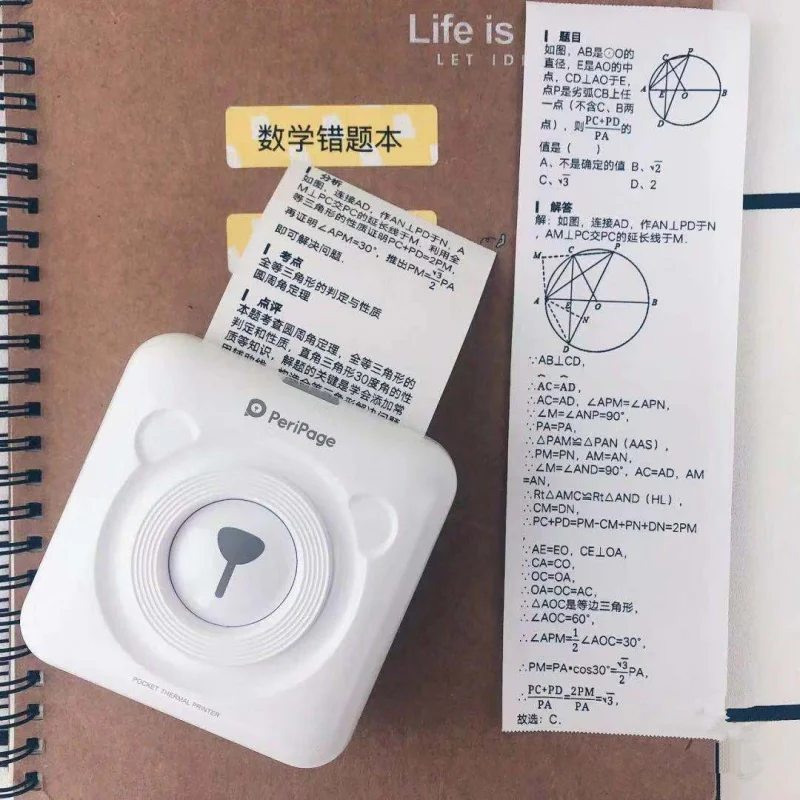 Life is
LET IDE
数学错题本
分析
如图，连接AD，作AN⊥PD于N，A
M⊥PC交PC的延长线于M，利用全
等三角形的性质证明PC+PD=2PM，
再证明∠APM=30°，推出PM=√3/2PA
即可解决问题.
考点
全等三角形的判定与性质
圆周角定理
点评
本题考查圆周角定理，全等三角形的
判定和性质，直角三角形30度角的性
质等知识，解题的关键是学会添加常
PeriPage
POCKET THERMAL PRINTER
题目
如图，AB是⊙O的
直径，E是AO的中
点，CD⊥AO于E，
点P是劣弧CB上任
一点（不含C、B两
点），则PC+PD/PA的
值是（ ）
A、不是确定的值 B、√2
C、√3 D、2
C P
A E O B
D
解答
解：如图，连接AD，作AN⊥PD于N
，AM⊥PC交PC的延长线于M.
M C P
A E O B
N
D
∵AB⊥CD，
∴AC=AD，
∴AC=AD，∠APM=∠APN，
∵∠M=∠ANP=90°，
∵PA=PA，
∴△PAM≌△PAN（AAS），
∴PM=PN，AM=AN，
∵∠M=∠AND=90°，AC=AD，AM
=AN，
∴Rt△AMC≌Rt△AND（HL），
∴CM=DN，
∴PC+PD=PM-CM+PN+DN=2PM
，
∵AE=EO，CE⊥OA，
∴CA=CO，
∵OC=OA，
∴OA=OC=AC，
∴△AOC是等边三角形，
∴∠AOC=60°，
∴∠APM=1/2∠AOC=30°，
∴PM=PA•cos30°=√3/2PA，
∴PC+PD/PA=2PM/PA=√3，
故选：C.